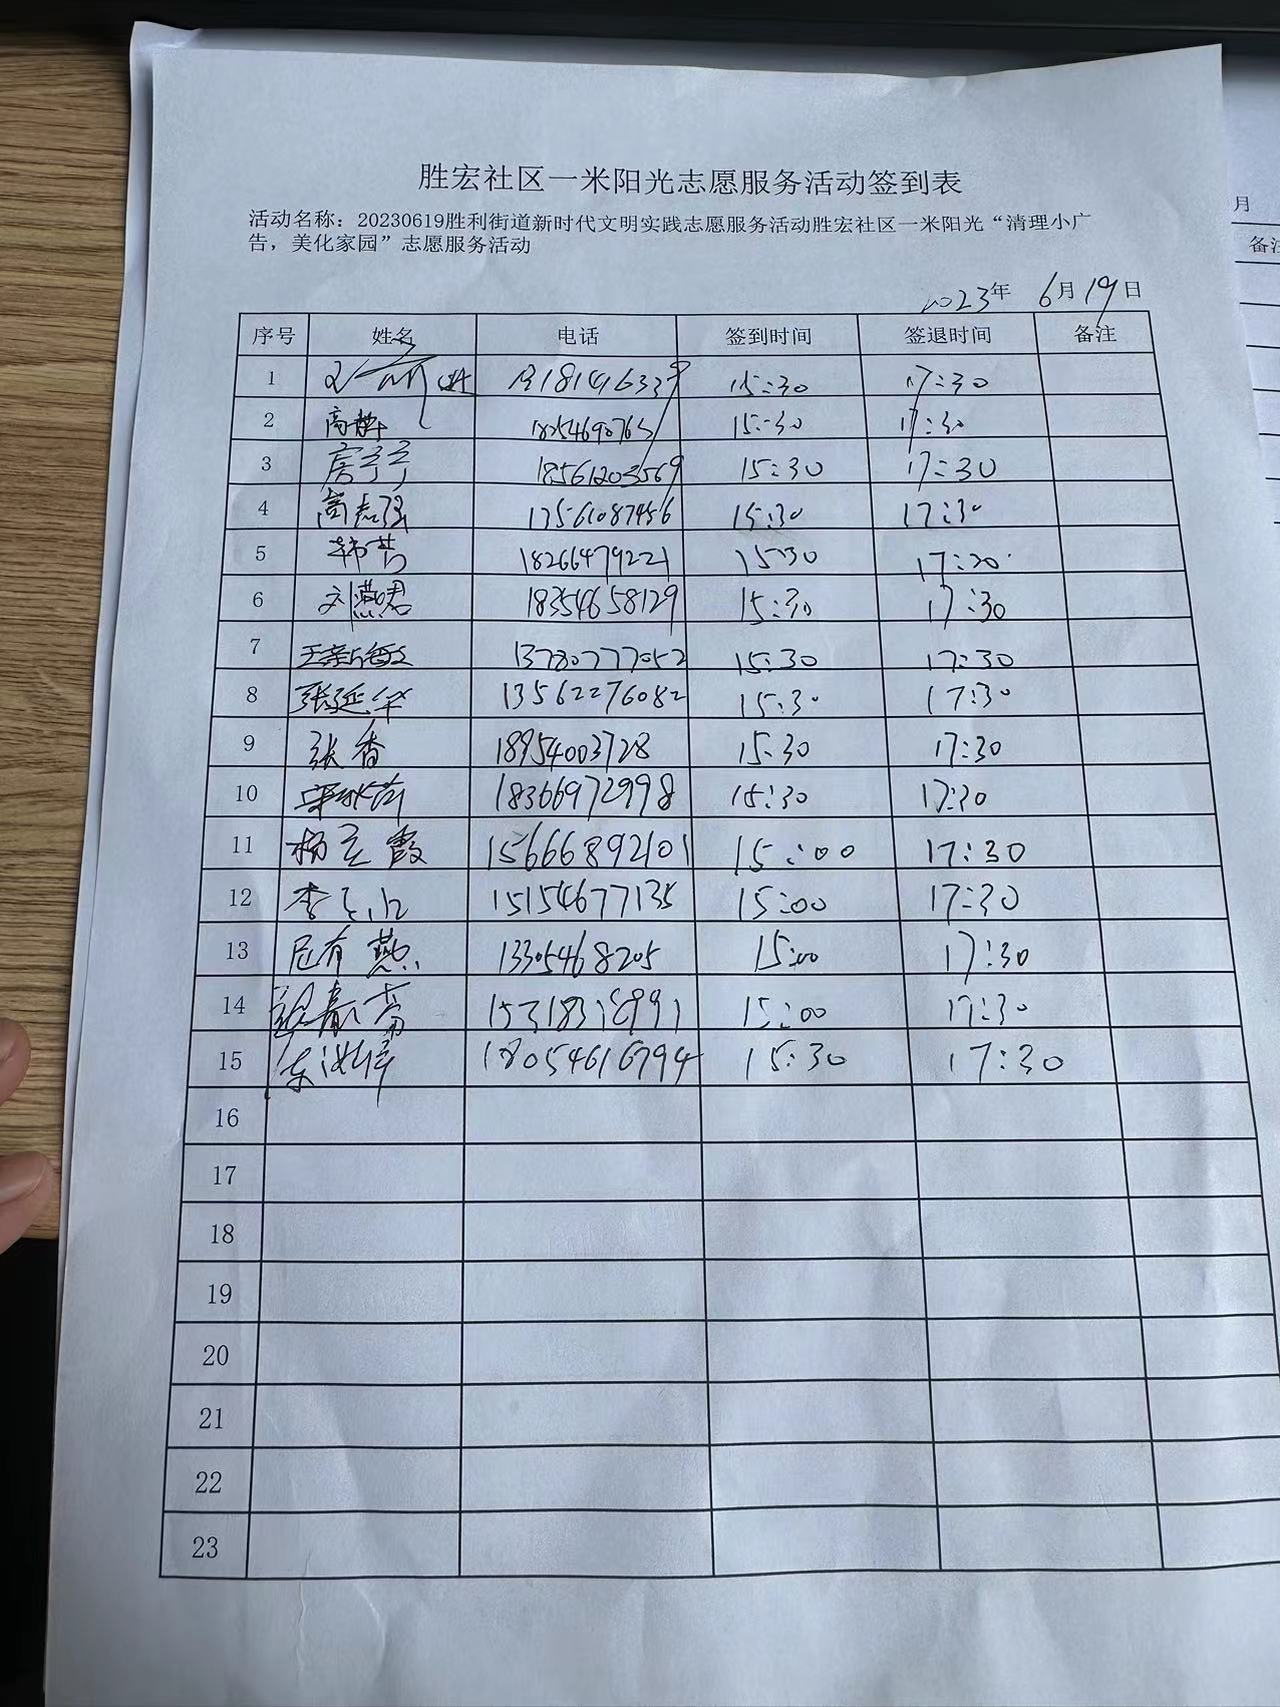 胜宏社区一米阳光志愿服务活动签到表
活动名称：20230619胜利街道新时代文明实践志愿服务活动胜宏社区一米阳光“清理小广
告，美化家园”志愿服务活动
月
备注
2023年 6月19日
序号 姓名 电话 签到时间 签退时间 备注
1 15:30 17:30
2 高静 15:30 17:30
3 房宁宁 18561203569 15:30 17:30
4 高志强 17561087456 15:30 17:30
5 韩芳 18266479221 15:30 17:30
6 刘燕君 18354658129 15:30 17:30
7 王新敏 13780777052 15:30 17:30
8 张延华 13562276082 15:30 17:30
9 张香 18954003728 15:30 17:30
10 18366972998 15:30 17:30
11 杨立霞 15666892101 15:00 17:30
12 李 15154677135 15:00 17:30
13 尼有燕 13305468205 15:00 17:30
14 15318318991 15:00 17:30
15 18054616794 15:30 17:30
16
17
18
19
20
21
22
23